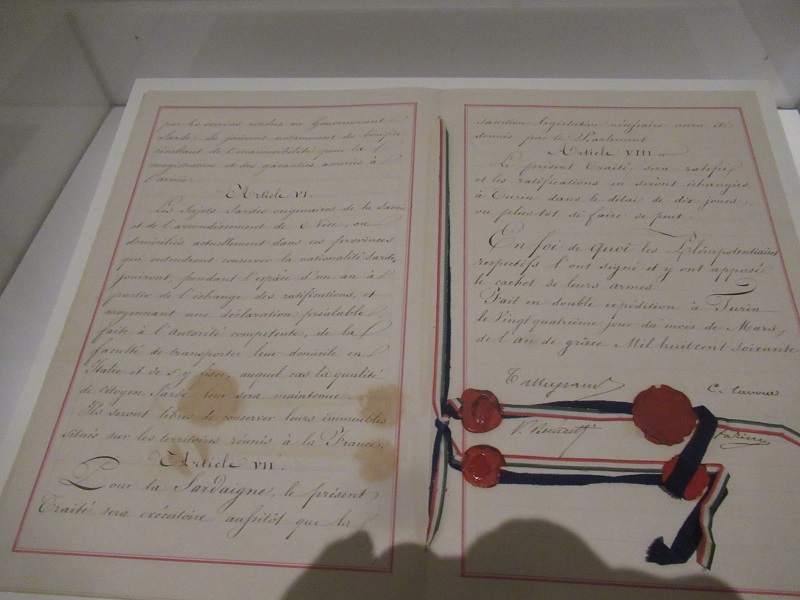 par les services rendus au Gouvernement
Sarde. Ils jouiront notamment du bénéfice
résultant de l'inamovibilité pour la
magistrature et des garanties assurées à
l'armée.
Article VI.
Les Sujets Sardes originaires de la Savoie
et de l'arrondissement de Nice, ou
domiciliés actuellement dans ces provinces
qui entendront conserver la nationalité Sarde,
jouiront, pendant l'espace d'un an à
partir de l'échange des ratifications, et
moyennant une déclaration préalable
faite à l'Autorité compétente, de la
faculté de transporter leur domicile en
Italie et de s'y fixer, auquel cas la qualité
de Citoyen Sarde leur sera maintenue.
Ils seront libres de conserver leurs immeubles
situés sur les territoires réunis à la France.
Article VII.
Pour la Sardaigne, le présent
Traité sera exécutoire aussitôt que la
sanction législative nécessaire aura été
donnée par le Parlement.
Article VIII.
Le présent traité sera ratifié
et les ratifications en seront échangées
à Turin dans le délai de dix jours,
ou plus tôt si faire se peut.
En foi de quoi les Plénipotentiaires
respectifs l'ont signé et y ont apposé
le cachet de leurs armes.
Fait en double expédition à Turin
le Vingt quatrième jour du mois de Mars,
de l'an de grâce Mil huit cent soixante
Talleyrand
C. Cavour
V. Benedetti
Farini